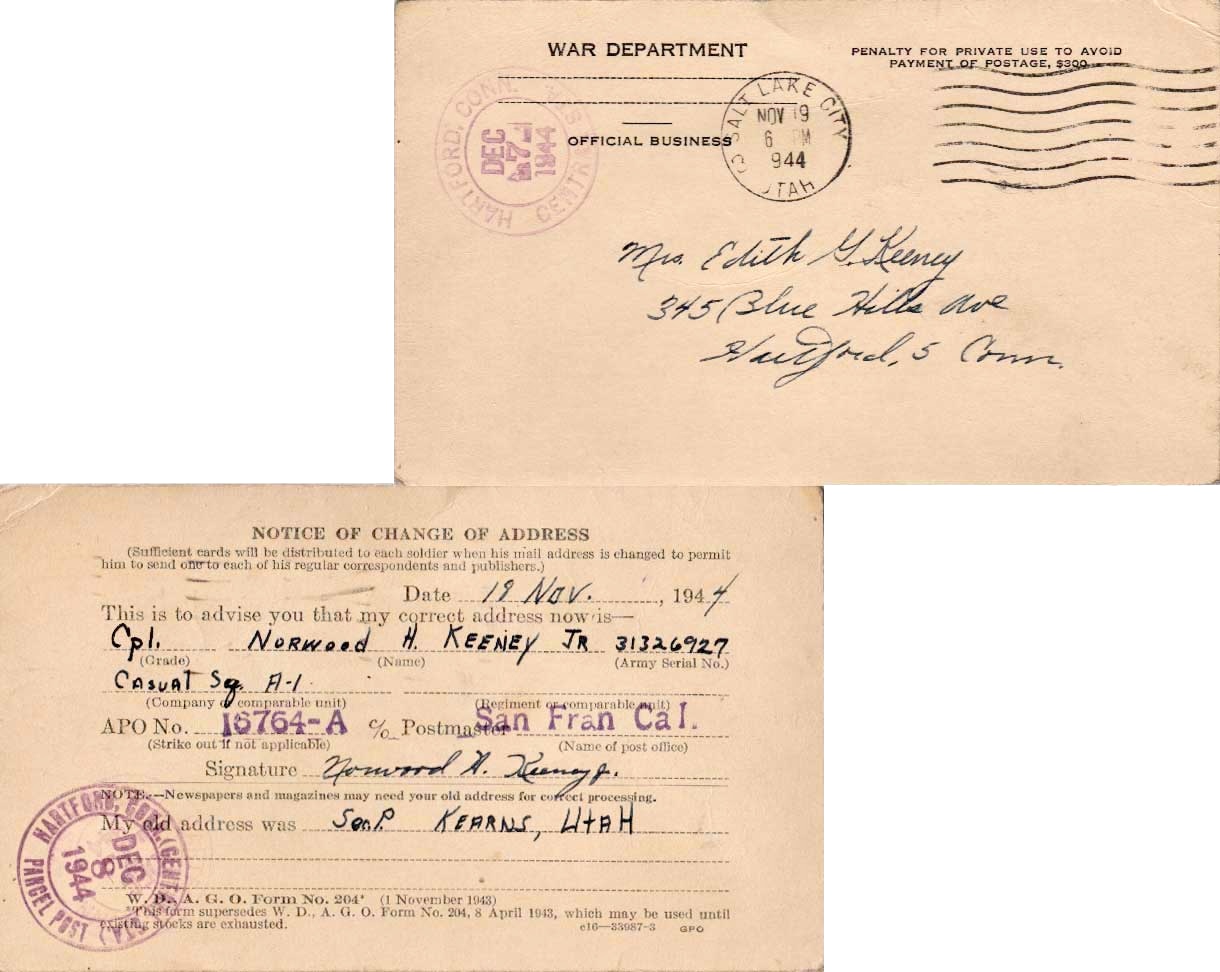 WAR DEPARTMENT
PENALTY FOR PRIVATE USE TO AVOID
PAYMENT OF POSTAGE, $300
OFFICIAL BUSINESS
HARTFORD, CONN.
DEC
7
1944
SALT LAKE CITY
NOV 19
6 PM
944
UTAH
Mrs. Edith G. Keeney
345 Blue Hills Ave
Hartford, 5 Conn.
NOTICE OF CHANGE OF ADDRESS
(Sufficient cards will be distributed to each soldier when his mail address is changed to permit
him to send one to each of his regular correspondents and publishers.)
Date 19 Nov. , 1944
This is to advise you that my correct address now is—
Cpl. NORWOOD H. KEENEY JR 31326927
(Grade) (Name) (Army Serial No.)
CASUAT Sq. A-1
(Company or comparable unit) (Regiment or comparable unit)
APO No. 16764-A c/o Postmaster San Fran Cal.
(Strike out if not applicable) (Name of post office)
Signature Norwood H. Keeney Jr.
NOTE.—Newspapers and magazines may need your old address for correct processing.
My old address was KEARNS, UTAH
HARTFORD, CONN. (CENT. STA.)
PARCEL POST
DEC
8
1944
W. D., A. G. O. Form No. 204* (1 November 1943)
*This form supersedes W. D., A. G. O. Form No. 204, 8 April 1943, which may be used until
existing stocks are exhausted.
c16—33987-3 GPO